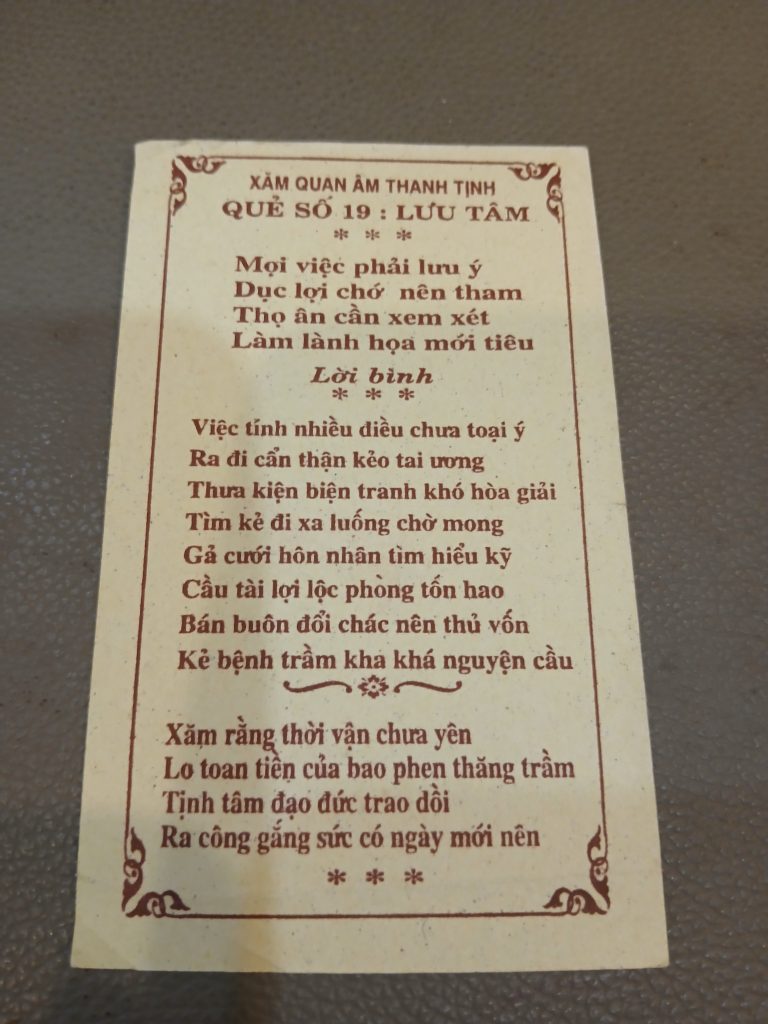 XĂM QUAN ÂM THANH TỊNH
QUẺ SỐ 19 : LƯU TÂM
* * *
Mọi việc phải lưu ý
Dục lợi chớ nên tham
Thọ ân cần xem xét
Làm lành họa mới tiêu
Lời bình
* * *
Việc tính nhiều điều chưa toại ý
Ra đi cẩn thận kẻo tai ương
Thưa kiện biện tranh khó hòa giải
Tìm kẻ đi xa luống chờ mong
Gả cưới hôn nhân tìm hiểu kỹ
Cầu tài lợi lộc phòng tốn hao
Bán buôn đổi chác nên thủ vốn
Kẻ bệnh trầm kha khá nguyện cầu
Xăm rằng thời vận chưa yên
Lo toan tiền của bao phen thăng trầm
Tịnh tâm đạo đức trao dồi
Ra công gắng sức có ngày mới nên
* * *